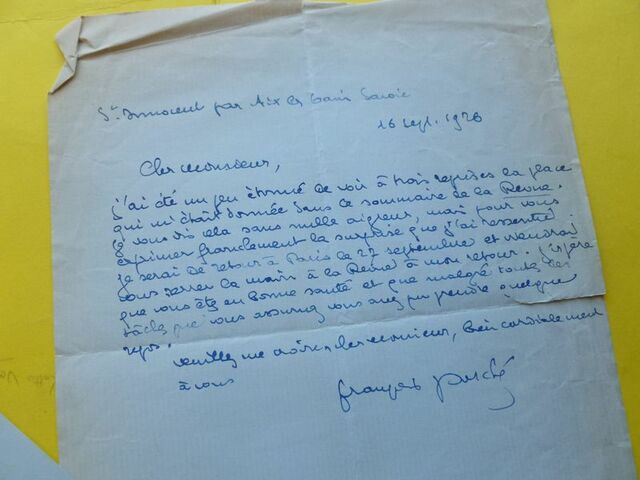 St Innocent par Aix les bains Savoie
16 sept. 1926
Cher monsieur,
j'ai été un peu étonné de voir à trois reprises la place
qui m'était donnée dans le sommaire de la Revue.
je vous dis cela sans nulle aigreur, mais pour vous
exprimer franchement la surprise que j'ai ressentie
je serai de retour à Paris le 27 septembre et viendrai
vous serrer la main à la Revue à mon retour. j'espère
que vous êtes en bonne santé et que malgré toutes les
tâches que vous assumez vous avez pu prendre quelque
repos.
veuillez me croire, cher monsieur, bien cordialement
à vous
françois porché